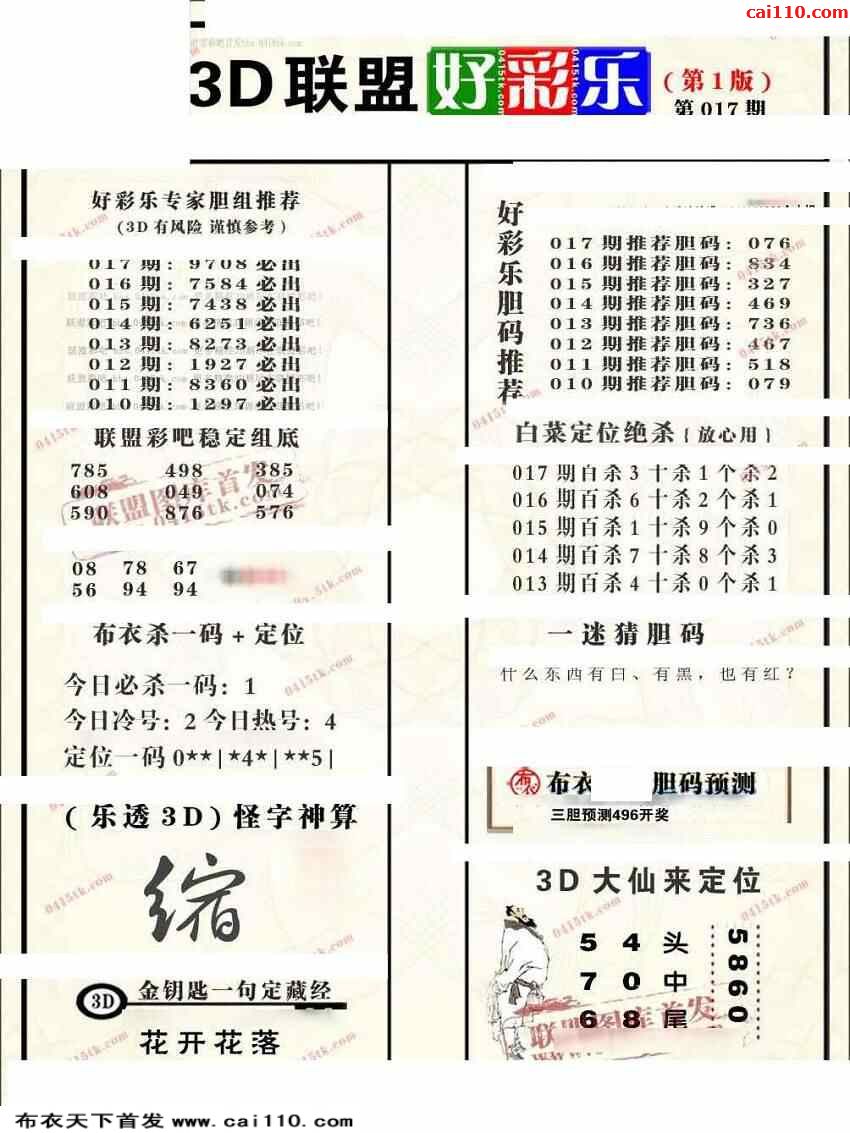 cai110.com
3D联盟好彩乐(第1版)
第017期
好彩乐专家胆组推荐
(3D有风险 谨慎参考)
017期: 9708必出
016期: 7584必出
015期: 7438必出
014期: 6251必出
013期: 8273必出
012期: 1927必出
011期: 8360必出
010期: 1297必出
联盟彩吧稳定组底
785 498 385
608 049 074
590 876 576
08 78 67
56 94 94
布衣杀一码+定位
今日必杀一码: 1
今日冷号: 2 今日热号: 4
定位一码 0**|*4*|**5|
(乐透3D)怪字神算
缩
3D 金钥匙一句定藏经
花开花落
好彩乐胆码推荐
017期推荐胆码: 076
016期推荐胆码: 834
015期推荐胆码: 327
014期推荐胆码: 469
013期推荐胆码: 736
012期推荐胆码: 467
011期推荐胆码: 518
010期推荐胆码: 079
白菜定位绝杀{放心用}
017期百杀3十杀1个杀2
016期百杀6十杀2个杀1
015期百杀1十杀9个杀0
014期百杀7十杀8个杀3
013期百杀4十杀0个杀1
一迷猜胆码
什么东西有白、有黑，也有红?
布衣 布衣 胆码预测
三胆预测496开奖
3D大仙来定位
5 4 头
7 0 中
6 8 尾
5860
联盟图库首发
0415tk.com
布衣天下首发 www.cai110.com